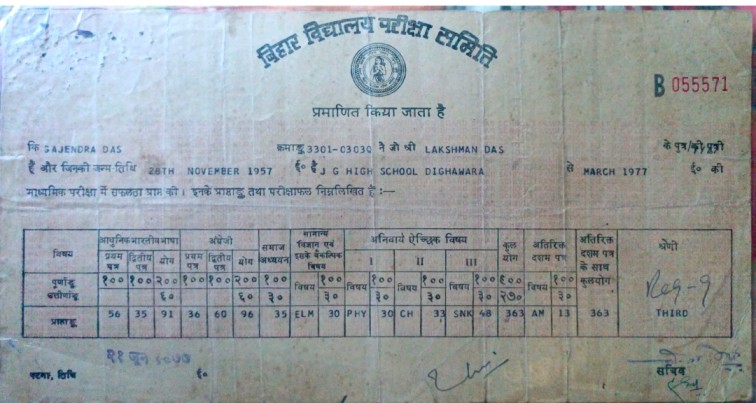 बिहार विद्यालय परीक्षा समिति
B 055571
प्रमाणित किया जाता है
कि GAJENDRA DAS क्रमाङ्क 3301-03030 ने जो श्री LAKSHMAN DAS के पुत्र/की पुत्री
हैं और जिनकी जन्म-तिथि 28TH NOVEMBER 1957 ई० है J G HIGH SCHOOL DIGHAWARA से MARCH 1977 ई० की
माध्यमिक परीक्षा में सफलता प्राप्त की। इनके प्राप्ताङ्क तथा परीक्षाफल निम्नलिखित हैं :—
विषय आधुनिक भारतीय भाषा अंग्रेजी समाज अध्ययन सामान्य विज्ञान एवं इसके वैकल्पिक विषय अनिवार्य ऐच्छिक विषय कुल योग अतिरिक्त दशम पत्र अतिरिक्त दशम पत्र के साथ कुलयोग श्रेणी
प्रथम पत्र द्वितीय पत्र योग प्रथम पत्र द्वितीय पत्र योग I II III
पूर्णाङ्क १०० १०० २०० १०० १०० २०० १०० विषय १०० विषय १०० विषय १०० विषय १०० ९०० विषय १००
उत्तीर्णाङ्क ६० ६० ३० ३० ३० ३० ३० २७० ३०
प्राप्ताङ्क 56 35 91 36 60 96 35 ELM 30 PHY 30 CH 33 SNK 48 363 AM 13 363 THIRD
पटना, तिथि २१ जून ई०
सचिव